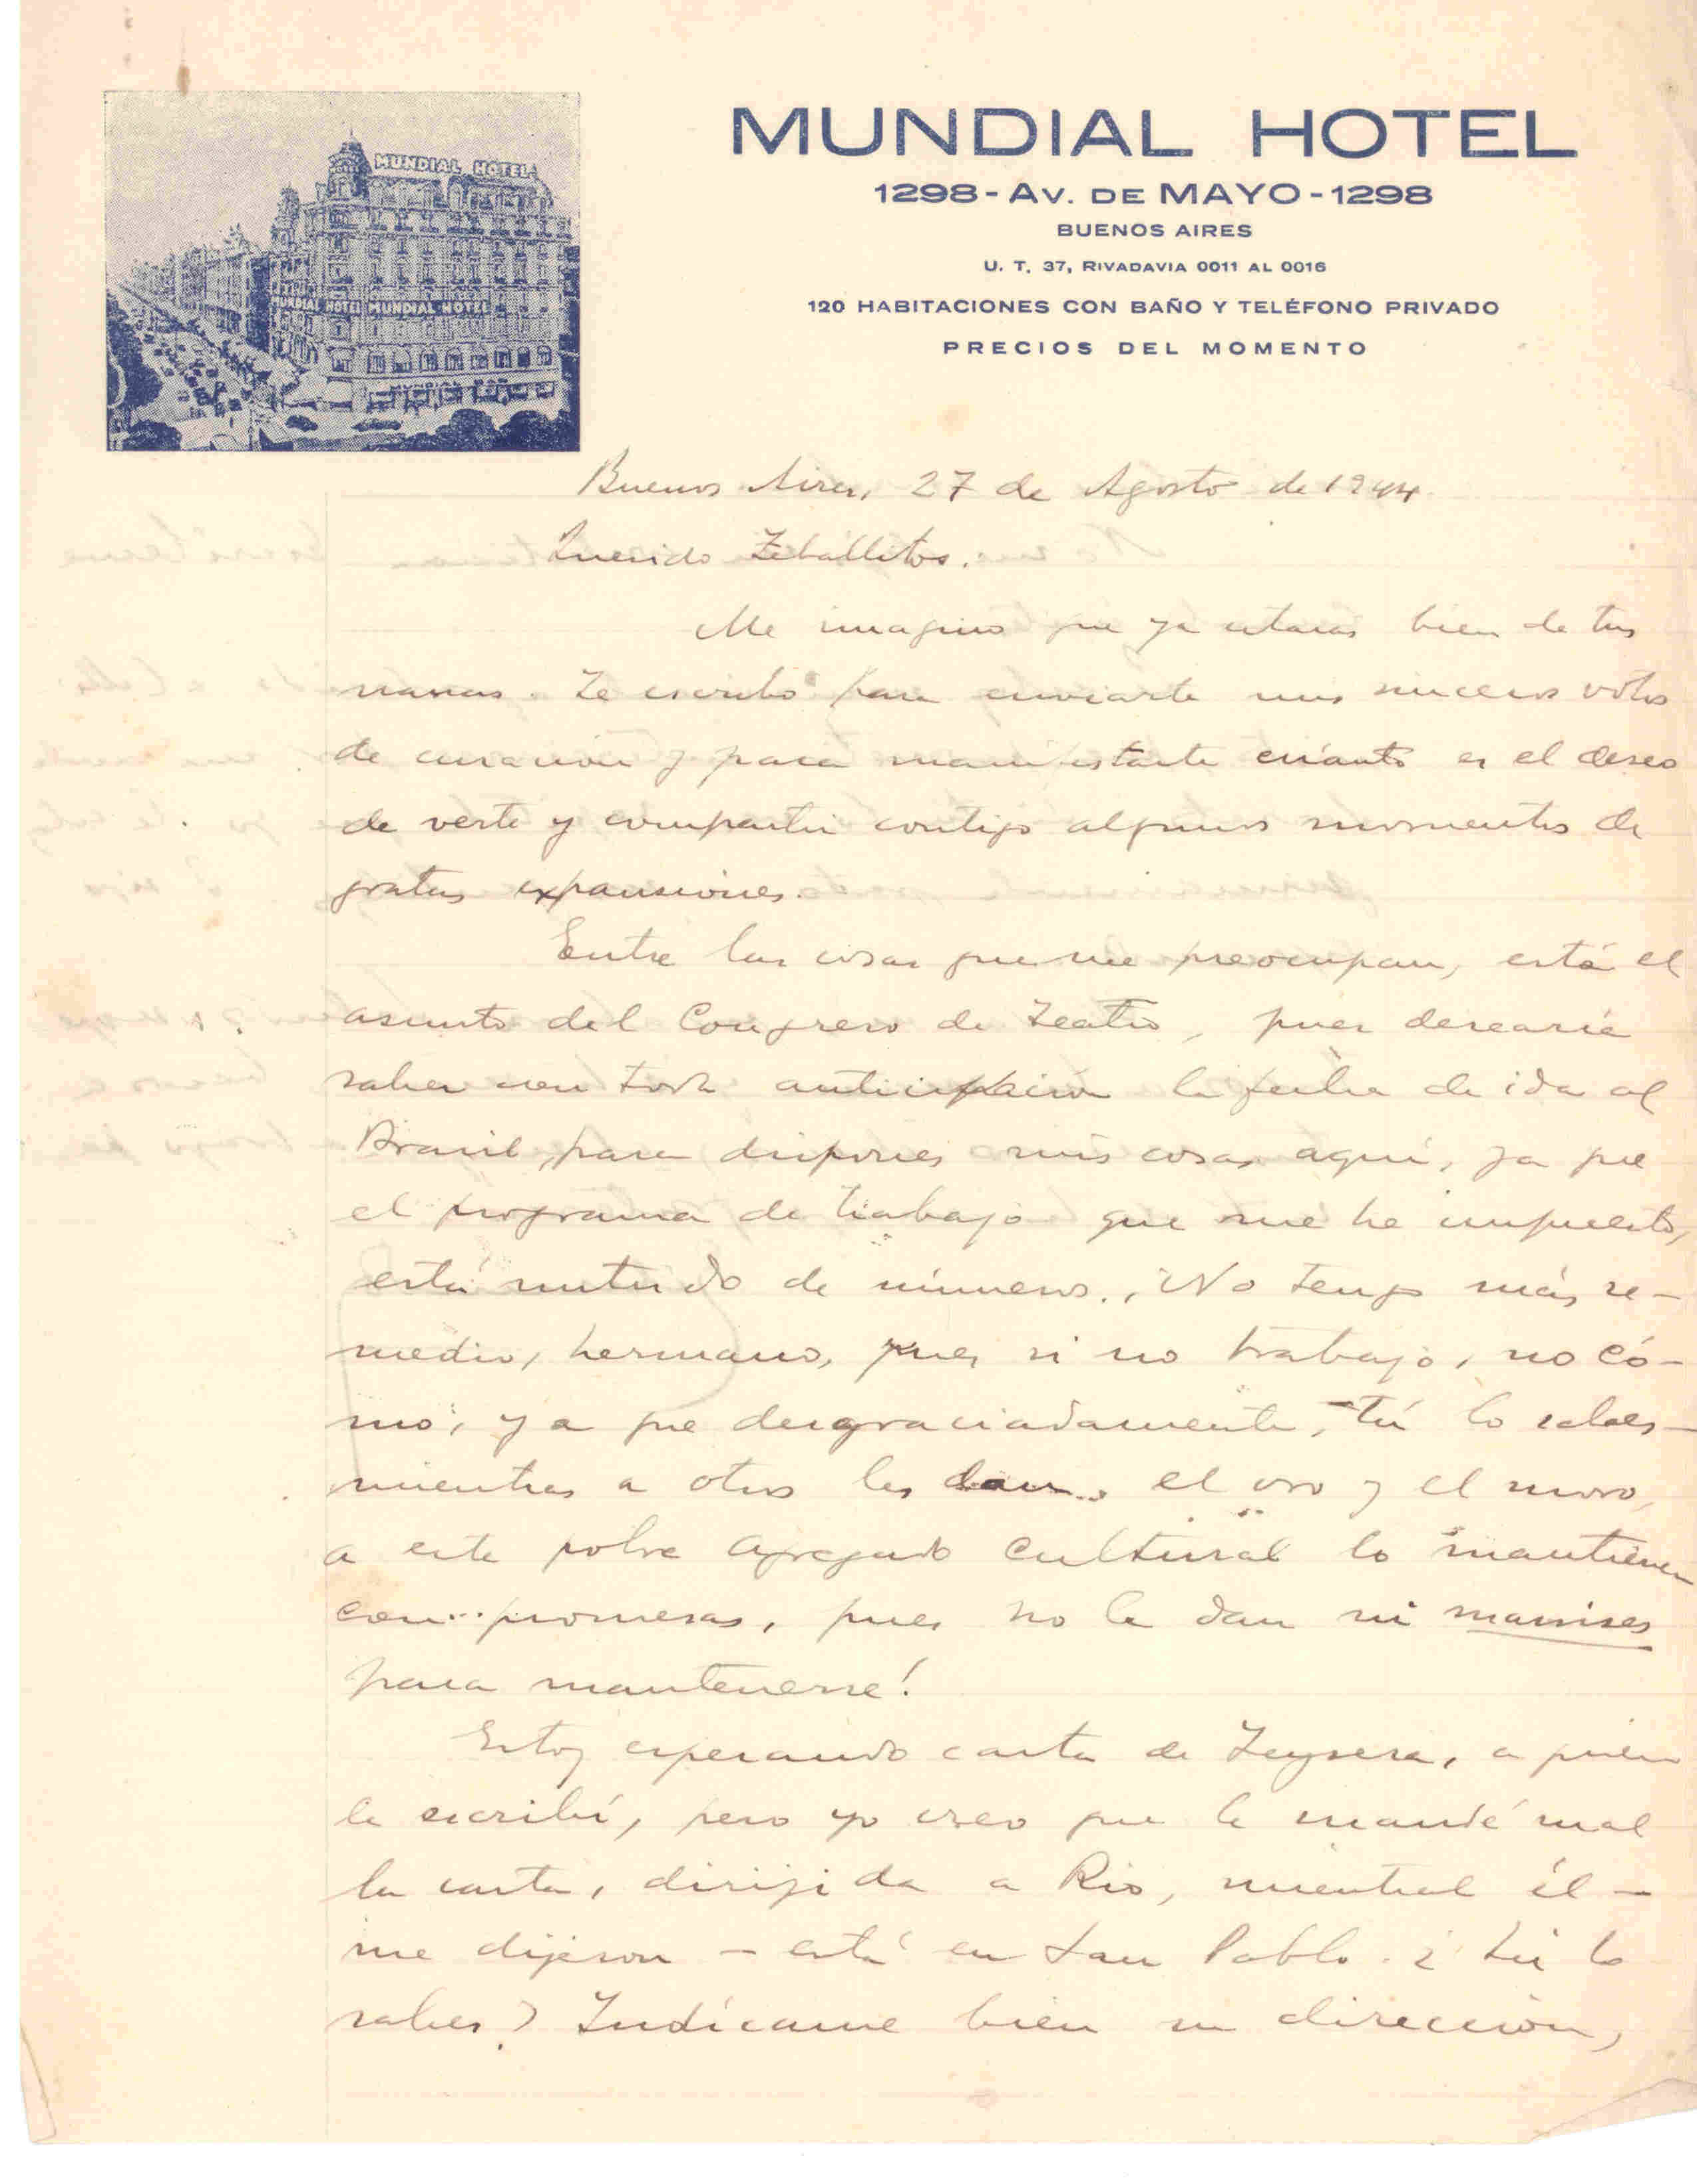 MUNDIAL HOTEL
1298 - AV. DE MAYO - 1298
BUENOS AIRES
U. T. 37, RIVADAVIA 0011 AL 0016
120 HABITACIONES CON BAÑO Y TELÉFONO PRIVADO
PRECIOS DEL MOMENTO
MUNDIAL HOTEL
MUNDIAL HOTEL MUNDIAL HOTEL
Buenos Aires, 27 de Agosto de 1944
Querido Zeballitos:
Me imagino que ya estarás bien de tus
nanas. Te escribo para enviarte mis sinceros votos
de curación y para manifestarte cuánto es el deseo
de verte y compartir contigo algunos momentos de
gratas expansiones.
Entre las cosas que me preocupan, está el
asunto del Congreso de Teatro, pues desearía
saber con toda anticipación la fecha de ida al
Brasil, para disponer mis cosas aquí, ya que
el programa de trabajo que me he impuesto,
está nutrido de números. No tengo más re-
medio, hermano, pues si no trabajo, no có-
mo, ya que desgraciadamente, -tú lo sabes-
mientras a otros les dan.. el oro y el moro,
a este pobre Agregado Cultural lo mantienen
con... promesas, pues no le dan ni manises
para mantenerse!
Estoy esperando carta de Teysera, a quien
le escribí, pero yo creo que le mandé mal
la carta, dirigida a Rio, mientras él -
me dijeron - está en San Pablo. ¿Tú lo
sabes? Indícame bien su dirección,